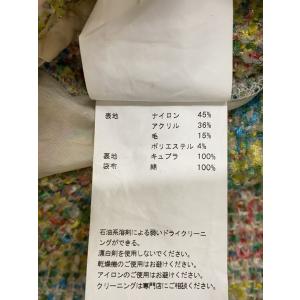 表地 ナイロン 45%
アクリル 36%
毛 15%
ポリエステル 4%
裏地 キュプラ 100%
袋布 綿 100%
石油系溶剤による弱いドライクリーニ
ングができる。
漂白剤を使用しないでください。
乾燥機のご使用はお避けください。
アイロンのご使用はお避けください。
クリーニングは専門店にご相談ください。